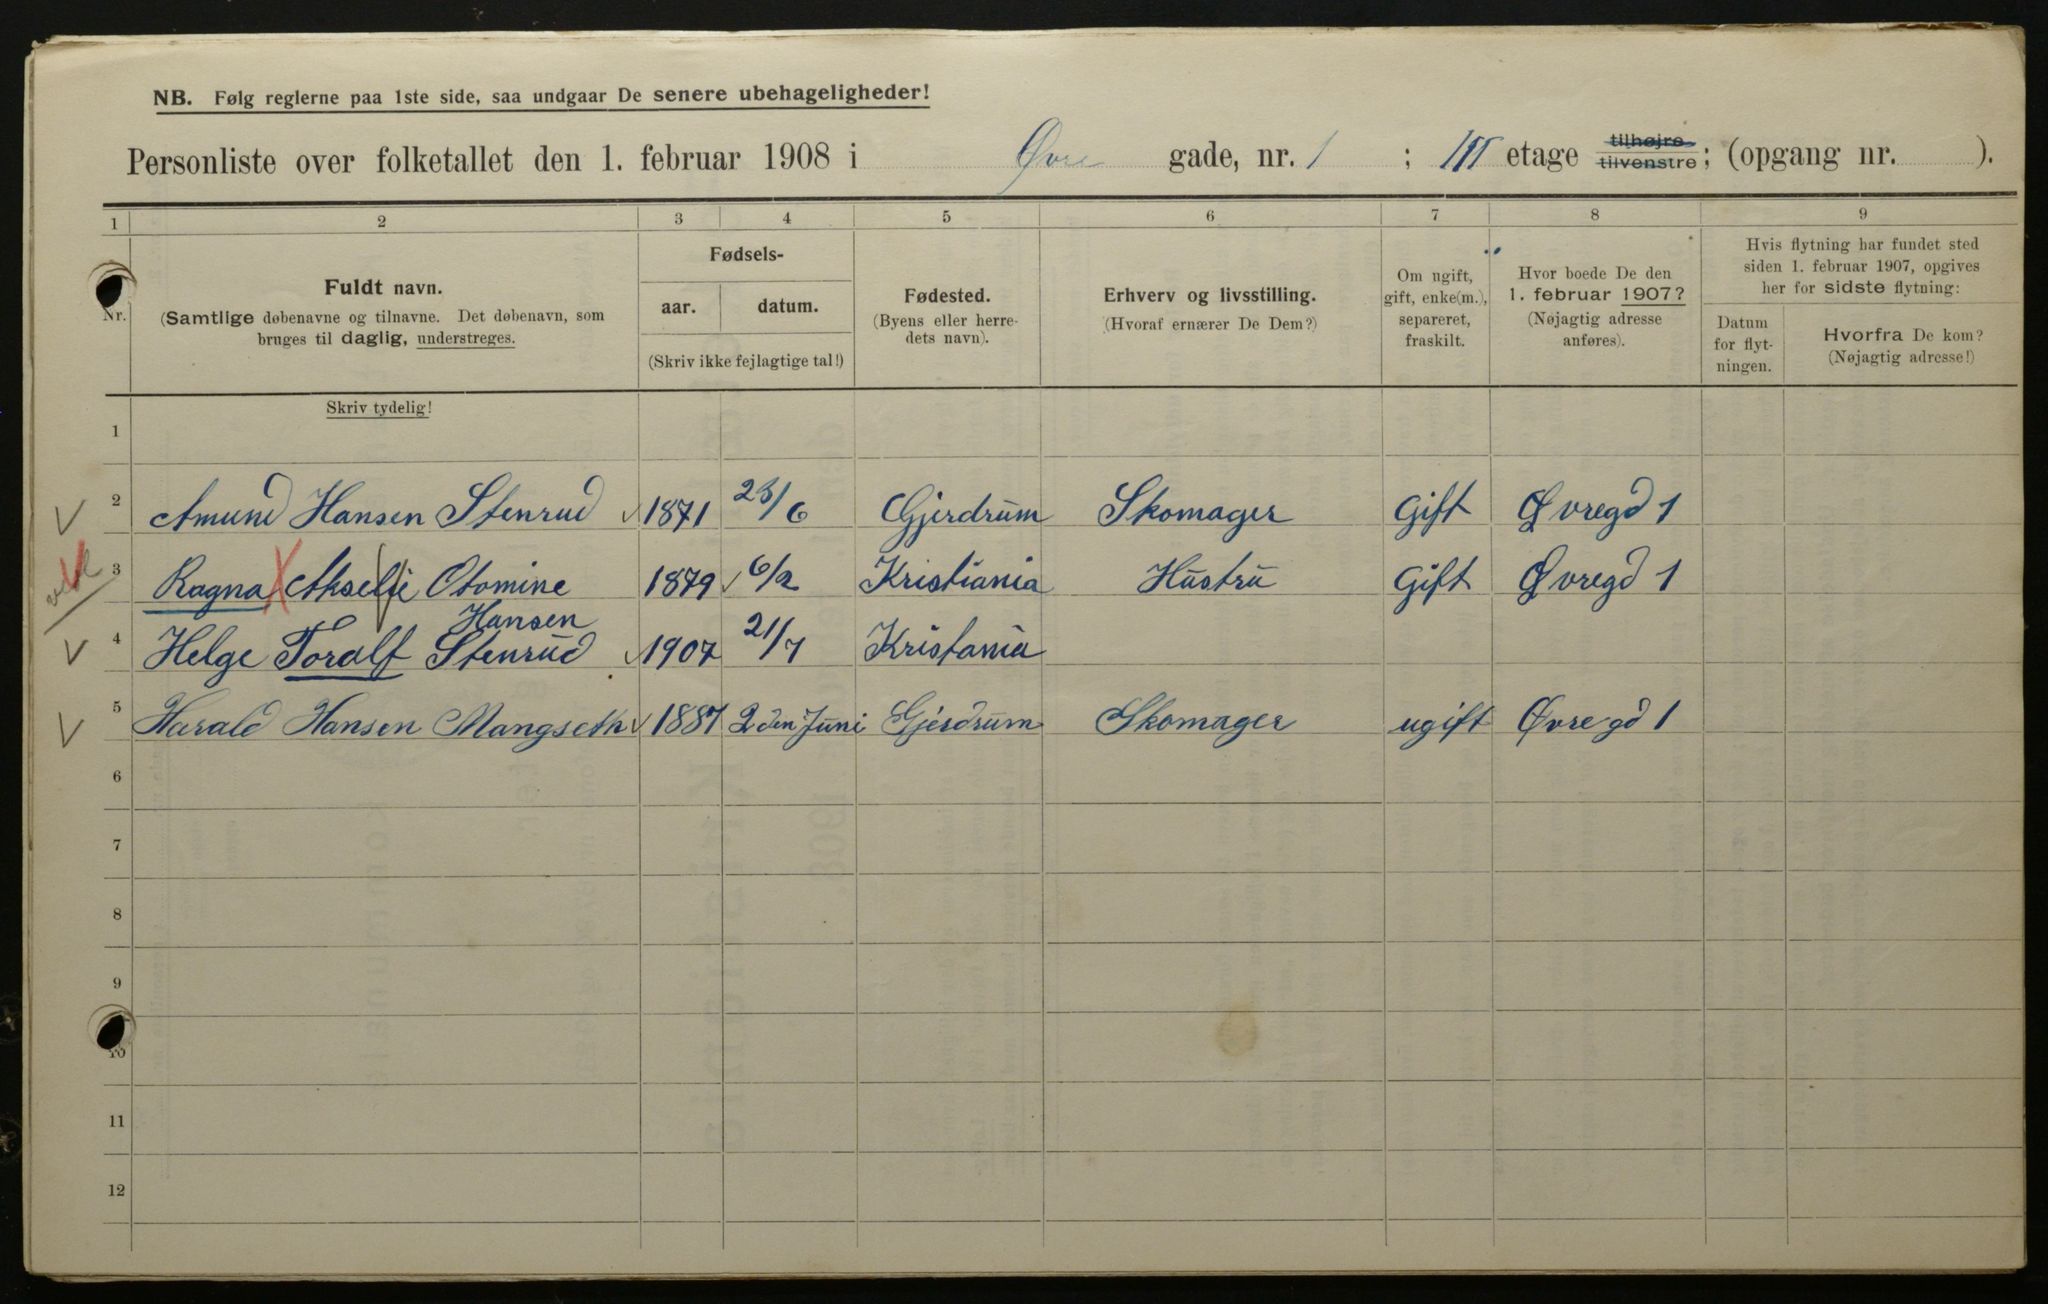 NB. Følg reglerne paa 1ste side, saa undgaar De senere ubehageligheder!
Personliste over folketallet den 1. februar 1908 i Øvre gade, nr. 1 ; III etage tilhøjre tilvenstre ; (opgang nr. ).
1 2 3 4 5 6 7 8 9
Nr.
Fuldt navn.
(Samtlige døbenavne og tilnavne. Det døbenavn, som
bruges til daglig, understreges.
Fødsels-
aar. datum.
(Skriv ikke fejlagtige tal!)
Fødested.
(Byens eller herre-
dets navn).
Erhverv og livsstilling.
(Hvoraf ernærer De Dem?)
Om ugift,
gift, enke(m.),
separeret,
fraskilt.
Hvor boede De den
1. februar 1907?
(Nøjagtig adresse
anføres).
Hvis flytning har fundet sted
siden 1. februar 1907, opgives
her for sidste flytning:
Datum
for flyt-
ningen.
Hvorfra De kom?
(Nøjagtig adresse!)
Skriv tydelig!
1
2 Amund Hansen Stenrud 1871 23/6 Gjerdrum Skomager Gift Øvregd 1
3 Ragna Akselie Otomine 1879 6/2 Kristiania Hustru Gift Øvregd 1
Hansen
4 Helge Toralf Stenrud 1907 21/7 Kristania
5 Harald Hansen Mangseth 1887 2den Juni Gjerdrum Skomager ugift Øvregd 1
6
7
8
9
10
11
12